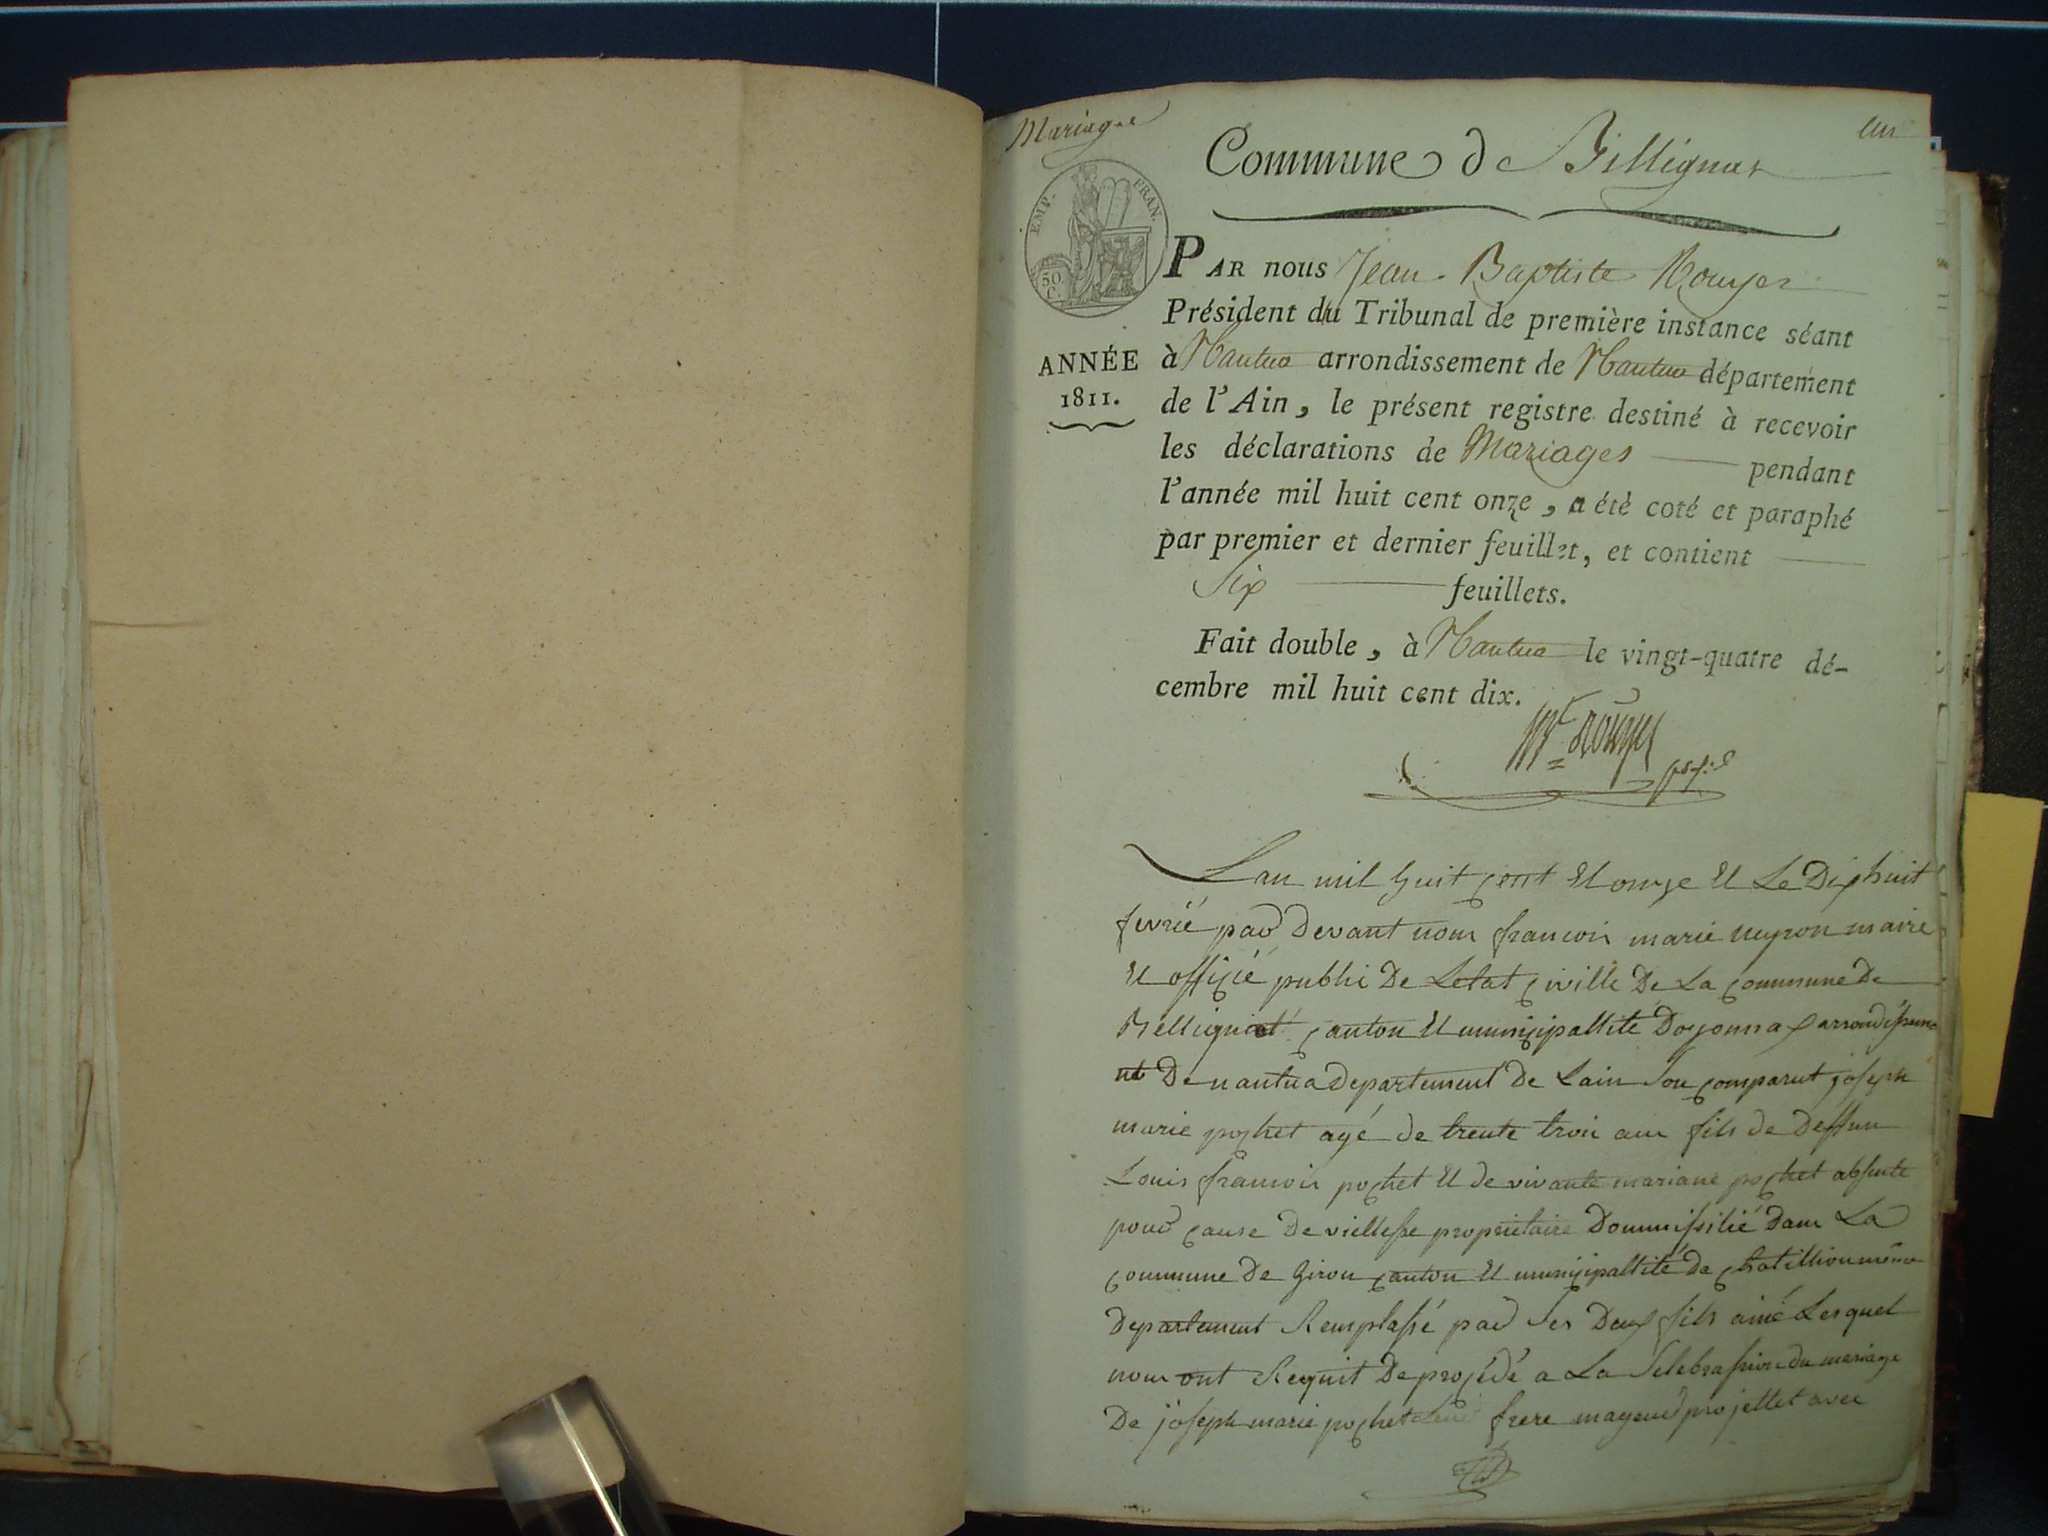 Mariage
un
Commune de Billignat
EMP. FRAN.
50 C.
PAR nous Jean-Baptiste Rouyer
Président du Tribunal de première instance séant
ANNÉE
1811.
à Nantua arrondissement de Nantua département
de l'Ain, le présent registre destiné à recevoir
les déclarations de Mariages pendant
l'année mil huit cent onze, a été coté et paraphé
par premier et dernier feuillet, et contient
Six feuillets.
Fait double, à Nantua le vingt-quatre dé-
cembre mil huit cent dix.
Rouyer
Lan mil huit cent et onze et Le Dix huit
fevrié par Devant nous francois marie neyron maire
et officié public De Letat civille De La commune De
Belligniat canton et municipallité Doyonnax arrondisseme
nt De nantua departement De Lain Son comparut joseph
marie pochet agé de trente trois ans fils de Deffun
Louis francois pochet et de vivante mariane pochet absente
pour cause De viellesse proprietaire Dommissilié dans La
commune De Giron canton et municipallité de chatillion même
Departement Remplassé par Ses Deux fils ainé Lesquel
nous ont Requit De procédé a La Selebrassion du mariage
De joseph marie pochet frere mageur projettet avec